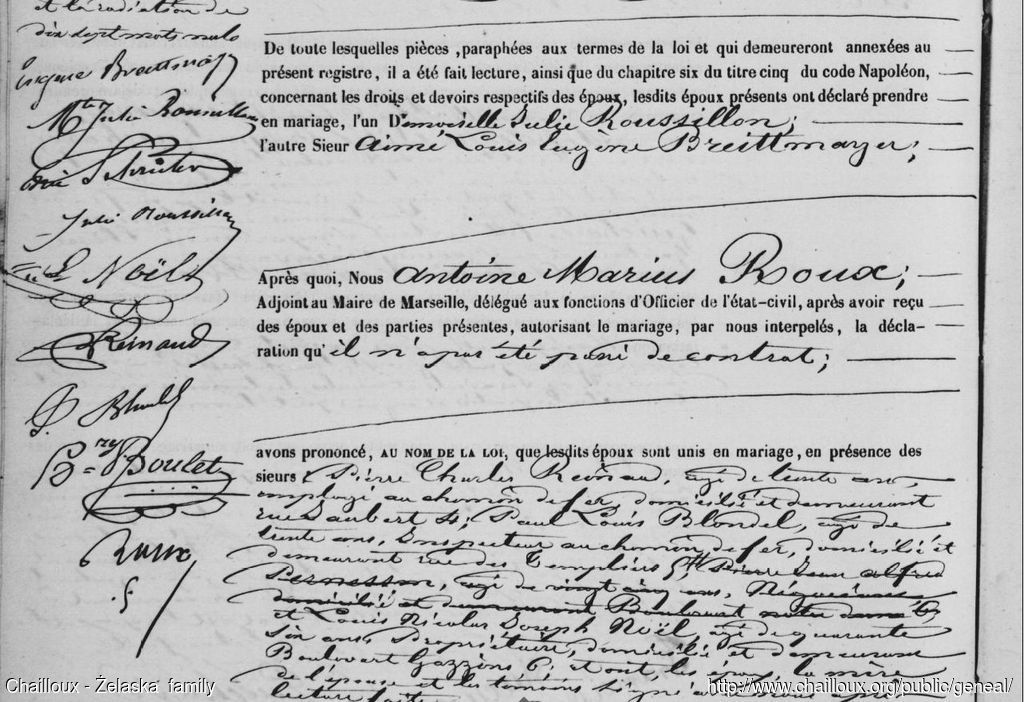 et la radiation de
dix sept mots nuls
Eugène Breittmayer
Julie Roussillon
Julie Roussillon
L Noël
Reinaud
P. Blondel
Boulet
Roux
De toute lesquelles pièces ,paraphées aux termes de la loi et qui demeureront annexées au
présent registre, il a été fait lecture, ainsi que du chapitre six du titre cinq du code Napoléon,
concernant les droits et devoirs respectifs des époux, lesdits époux présents ont déclaré prendre
en mariage, l'un Demoiselle Julie Roussillon;
l'autre Sieur Aimé Louis Eugène Breittmayer;
Après quoi, Nous Antoine Marius Roux;
Adjoint au Maire de Marseille, délégué aux fonctions d'Officier de l'état-civil, après avoir reçu
des époux et des parties présentes, autorisant le mariage, par nous interpelés, la décla-
ration qu'il n'a pas été passé de contrat;
avons prononcé, AU NOM DE LA LOI, que lesdits époux sont unis en mariage, en présence des
sieurs Pierre Charles Reinaud, agé de trente ans,
employé au chemin de fer, domicilié et demeurant
rue Jaubert 4; Paul Louis Blondel, agé de
trente ans, Inspecteur au chemin de fer, domicilié et
demeurant rue des Templiers Pierre Jean Alfred
agé de vingt cinq ans, Négociant
domicilié et demeurant Boulevart
et Louis Nicolas Joseph Noël, agé de quarante
six ans, Propriétaire, domicilié et demeurant
Boulevart Gazzino 6; et ont, les époux, la mère
de l'épouse et les témoins signé avec nous après
lecture faite
Chailloux - Żelaska family
http://www.chailloux.org/public/geneal/